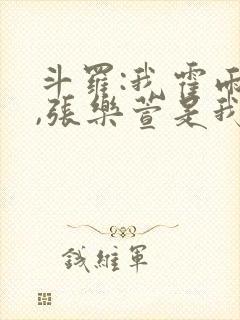 斗羅:我霍雨
,張樂萱是我
錢維軍